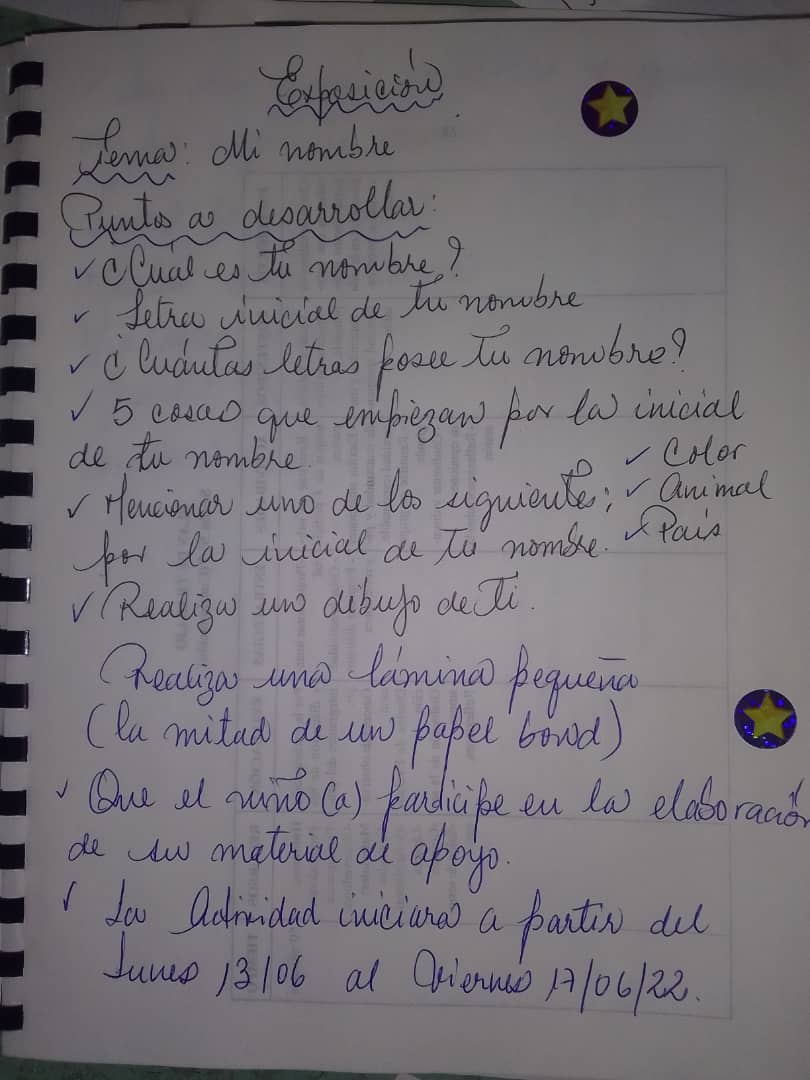 Exposición
Tema: Mi nombre
Puntos a desarrollar:
✓ ¿Cuál es tu nombre?
✓ Letra inicial de tu nombre
✓ ¿Cuántas letras posee tu nombre?
✓ 5 cosas que empiezan por la inicial
de tu nombre.
✓ Mencionar uno de los siguientes;
por la inicial de tu nombre.
✓ Color
✓ Animal
✓ País
✓ Realiza un dibujo de ti.
Realiza una lámina pequeña
(la mitad de un papel bond)
✓ Que el niño(a) participe en la elaboración
de su material de apoyo.
✓ La Actividad iniciará a partir del
Lunes 13/06 al Viernes 17/06/22.